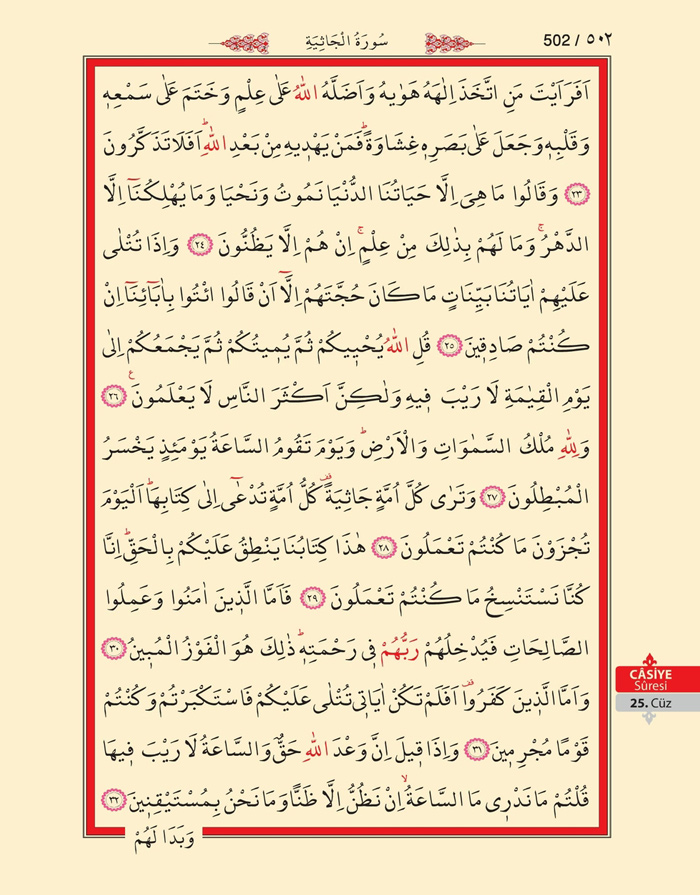 سُورَةُ الْجَاثِيَةِ
502 / ٥٠٢
اَفَرَاَيْتَ مَنِ اتَّخَذَ اِلٰهَهُ هَوٰيهُ وَاَضَلَّهُ اللّٰهُ عَلٰى عِلْمٍ وَخَتَمَ عَلٰى سَمْعِهٖ
وَقَلْبِهٖ وَجَعَلَ عَلٰى بَصَرِهٖ غِشَاوَةًۜ فَمَنْ يَهْدٖيهِ مِنْ بَعْدِ اللّٰهِۜ اَفَلَا تَذَكَّرُونَ
﴿٢٣﴾ وَقَالُوا مَا هِىَ اِلَّا حَيَاتُنَا الدُّنْيَا نَمُوتُ وَنَحْيَا وَمَا يُهْلِكُنَٓا اِلَّا
الدَّهْرُۚ وَمَا لَهُمْ بِذٰلِكَ مِنْ عِلْمٍۚ اِنْ هُمْ اِلَّا يَظُنُّونَ ﴿٢٤﴾ وَاِذَا تُتْلٰى
عَلَيْهِمْ اٰيَاتُنَا بَيِّنَاتٍ مَا كَانَ حُجَّتَهُمْ اِلَّٓا اَنْ قَالُوا ائْتُوا بِاٰبَٓائِنَٓا اِنْ
كُنْتُمْ صَادِقٖينَ ﴿٢٥﴾ قُلِ اللّٰهُ يُحْيٖيكُمْ ثُمَّ يُمٖيتُكُمْ ثُمَّ يَجْمَعُكُمْ اِلٰى
يَوْمِ الْقِيٰمَةِ لَا رَيْبَ فٖيهِ وَلٰكِنَّ اَكْثَرَ النَّاسِ لَا يَعْلَمُونَۚ ﴿٢٦﴾
وَلِلّٰهِ مُلْكُ السَّمٰوَاتِ وَالْاَرْضِۜ وَيَوْمَ تَقُومُ السَّاعَةُ يَوْمَئِذٍ يَخْسَرُ
الْمُبْطِلُونَ ﴿٢٧﴾ وَتَرٰى كُلَّ اُمَّةٍ جَاثِيَةًࣞ كُلُّ اُمَّةٍ تُدْعٰٓى اِلٰى كِتَابِهَاۜ اَلْيَوْمَ
تُجْزَوْنَ مَا كُنْتُمْ تَعْمَلُونَ ﴿٢٨﴾ هٰذَا كِتَابُنَا يَنْطِقُ عَلَيْكُمْ بِالْحَقِّۜ اِنَّا
كُنَّا نَسْتَنْسِخُ مَا كُنْتُمْ تَعْمَلُونَ ﴿٢٩﴾ فَاَمَّا الَّذٖينَ اٰمَنُوا وَعَمِلُوا
الصَّالِحَاتِ فَيُدْخِلُهُمْ رَبُّهُمْ فٖى رَحْمَتِهٖۜ ذٰلِكَ هُوَ الْفَوْزُ الْمُبٖينُ ﴿٣٠﴾
وَاَمَّا الَّذٖينَ كَفَرُواࣞ اَفَلَمْ تَكُنْ اٰيَاتٖى تُتْلٰى عَلَيْكُمْ فَاسْتَكْبَرْتُمْ وَكُنْتُمْ
قَوْمًا مُجْرِمٖينَ ﴿٣١﴾ وَاِذَا قٖيلَ اِنَّ وَعْدَ اللّٰهِ حَقٌّ وَالسَّاعَةُ لَا رَيْبَ فٖيهَا
قُلْتُمْ مَا نَدْرٖى مَا السَّاعَةُۙ اِنْ نَظُنُّ اِلَّا ظَنًّا وَمَا نَحْنُ بِمُسْتَيْقِنٖينَ ﴿٣٢﴾
وَبَدَا لَهُمْ
CÂSİYE
Sûresi
25. Cüz